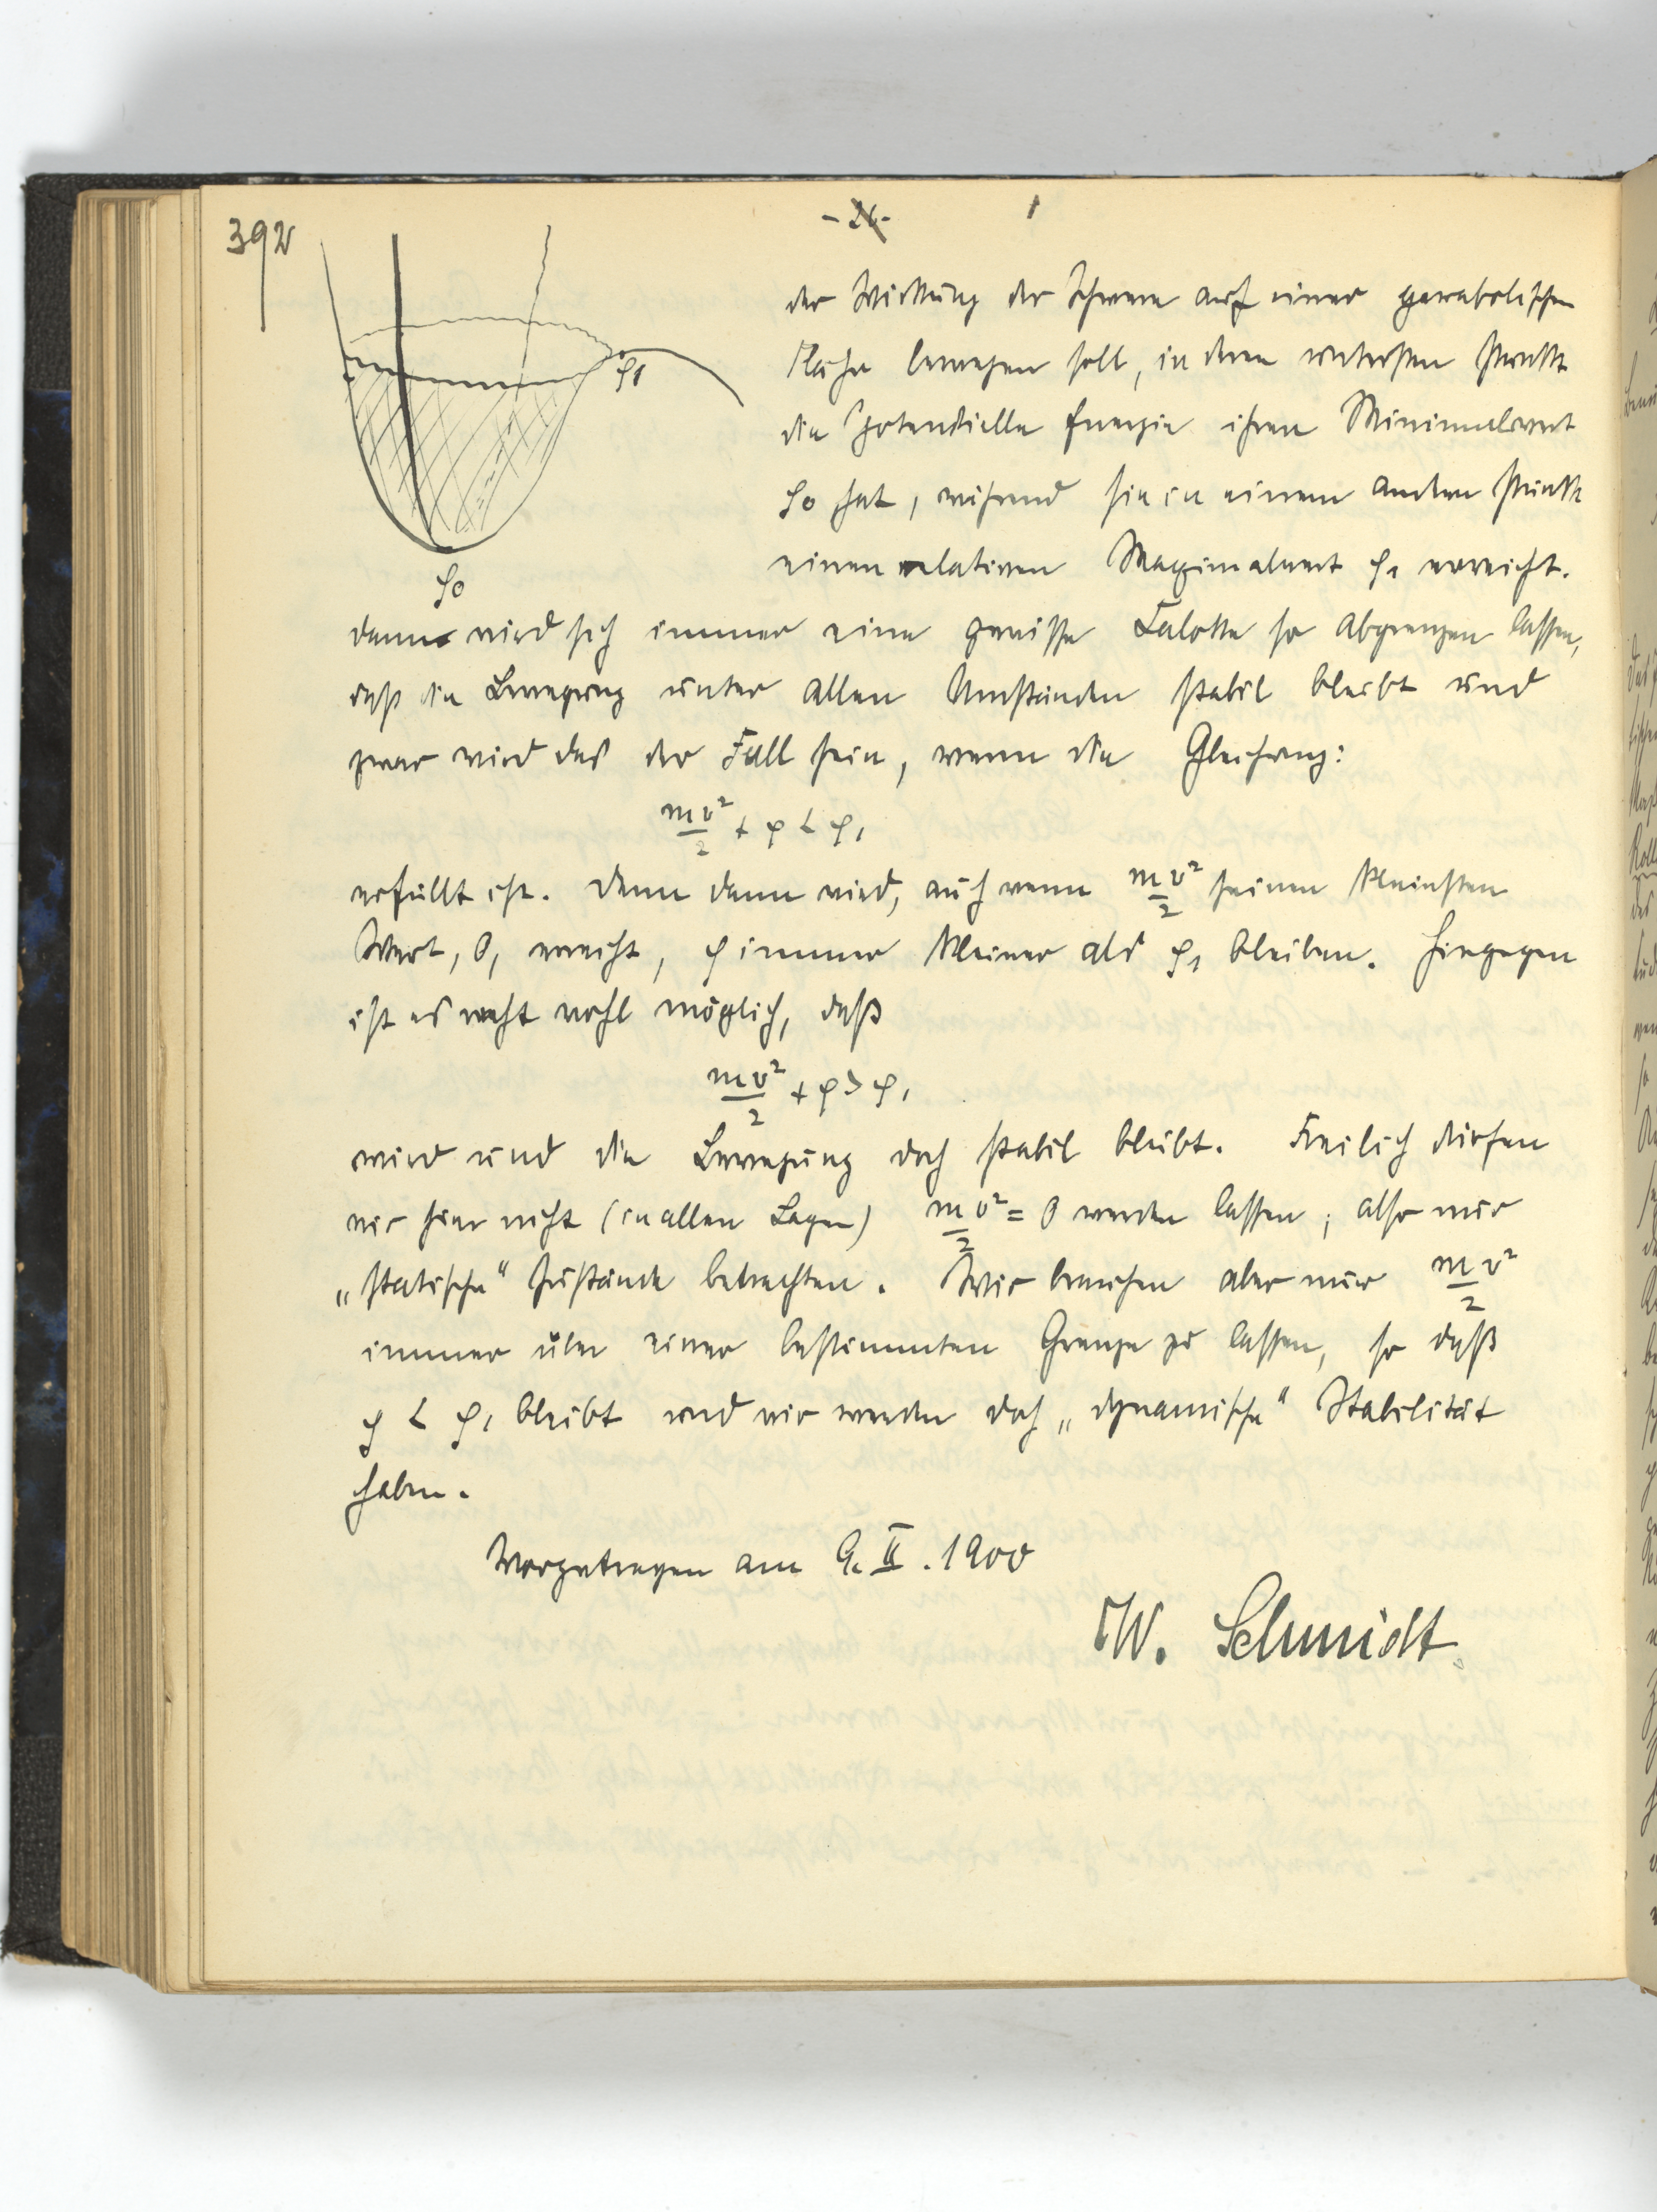 392
- 26 -
der Wirkung der Schwere auf einer parabolischen
Fläche bewegen soll, in deren untersten Punkt
die potentielle Energie ihren Minimalwert
φ0 hat, während sie in einem andern Punkte
einen relativen Maximalwert φ1 erreicht.
φ1
φ0
dann wird sich immer eine gewisse Calotte so abgrenzen lassen,
daß die Bewegung unter allen Umständen stabil bleibt und
zwar wird das der Fall sein, wenn die Gleichung:
mv²/2 + φ < φ1
erfüllt ist. Denn dann wird, auch wenn mv²/2 seinen kleinsten
Wert, 0, erreicht, φ immer kleiner als φ1 bleiben. Hingegen
ist es recht wohl möglich, daß
mv²/2 + φ > φ1
wird und die Bewegung doch stabil bleibt. Freilich dürfen
wir hier nicht (in allen Lagen) m/2 v² = 0 werden lassen, also nur
„statische“ Zustände betrachten. Wir brauchen aber nur m/2 v²
immer über einer bestimmten Grenze zu lassen, so daß
φ < φ1 bleibt und wir werden doch „dynamische“ Stabilität
haben.
Vorgetragen am 9. II. 1900
W. Schmidt.